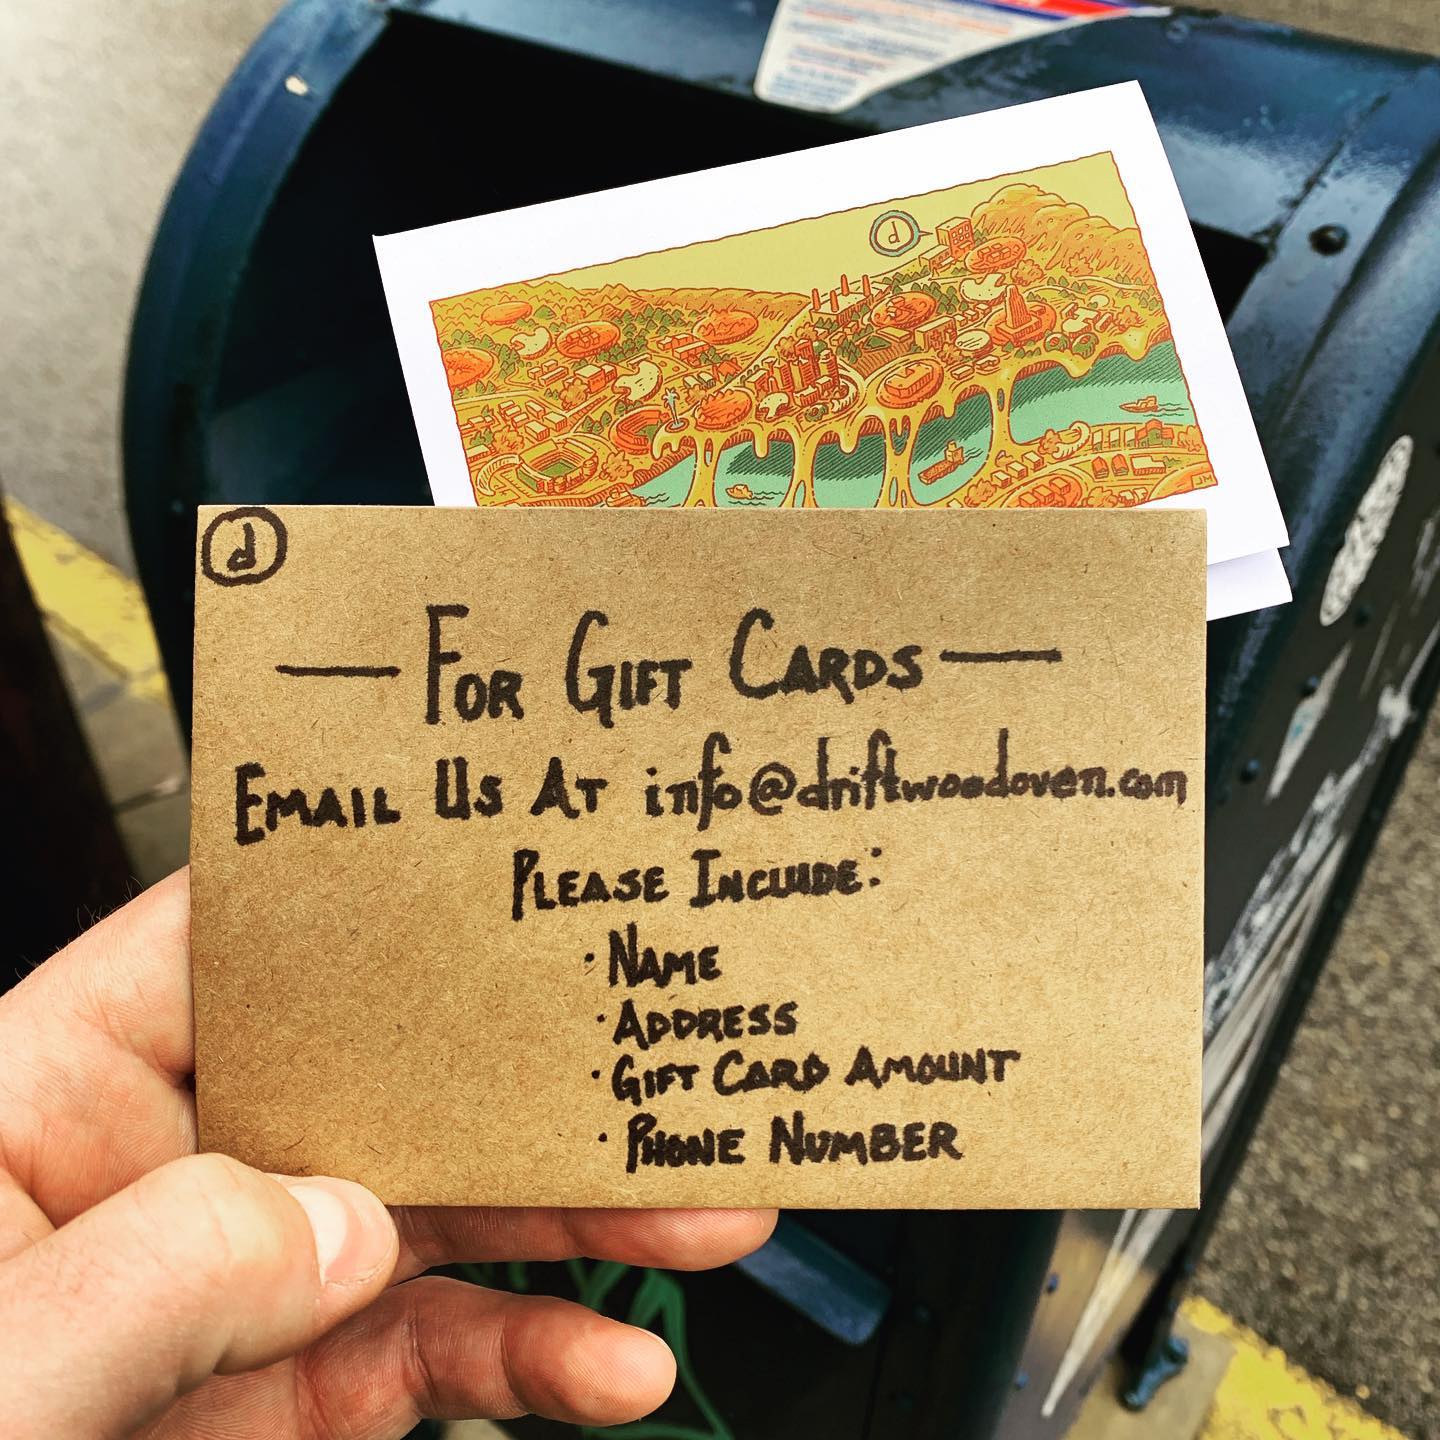 d
JM
d
— FOR GIFT CARDS —
EMAIL US AT info@driftwoodoven.com
PLEASE INCLUDE:
· NAME
· ADDRESS
· GIFT CARD AMOUNT
· PHONE NUMBER